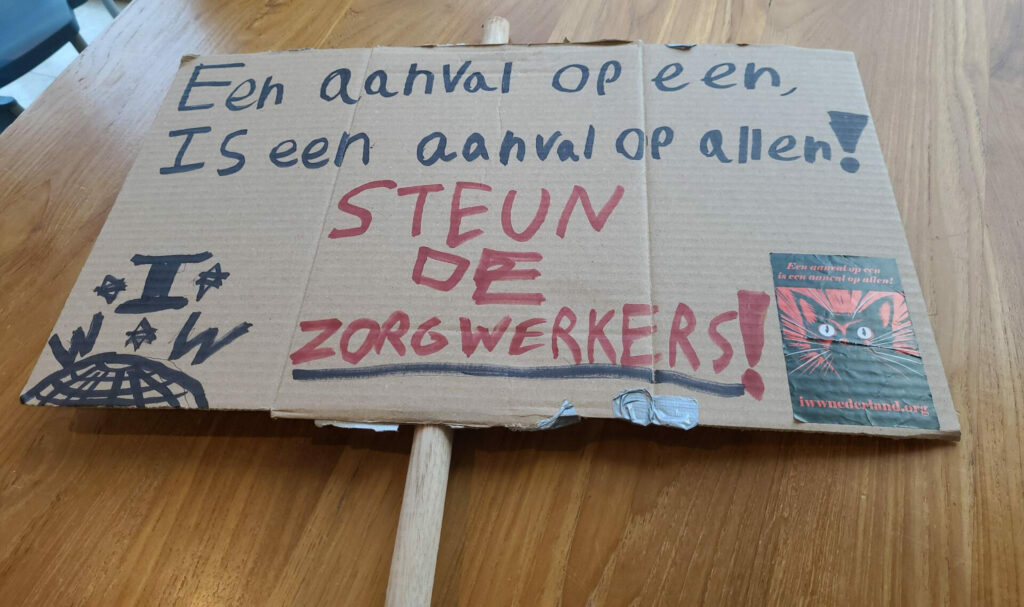 Een aanval op een,
Is een aanval op allen!
STEUN
DE
ZORGWERKERS!
I
W W
Een aanval op een
is een aanval op allen!
iwwnederland.org